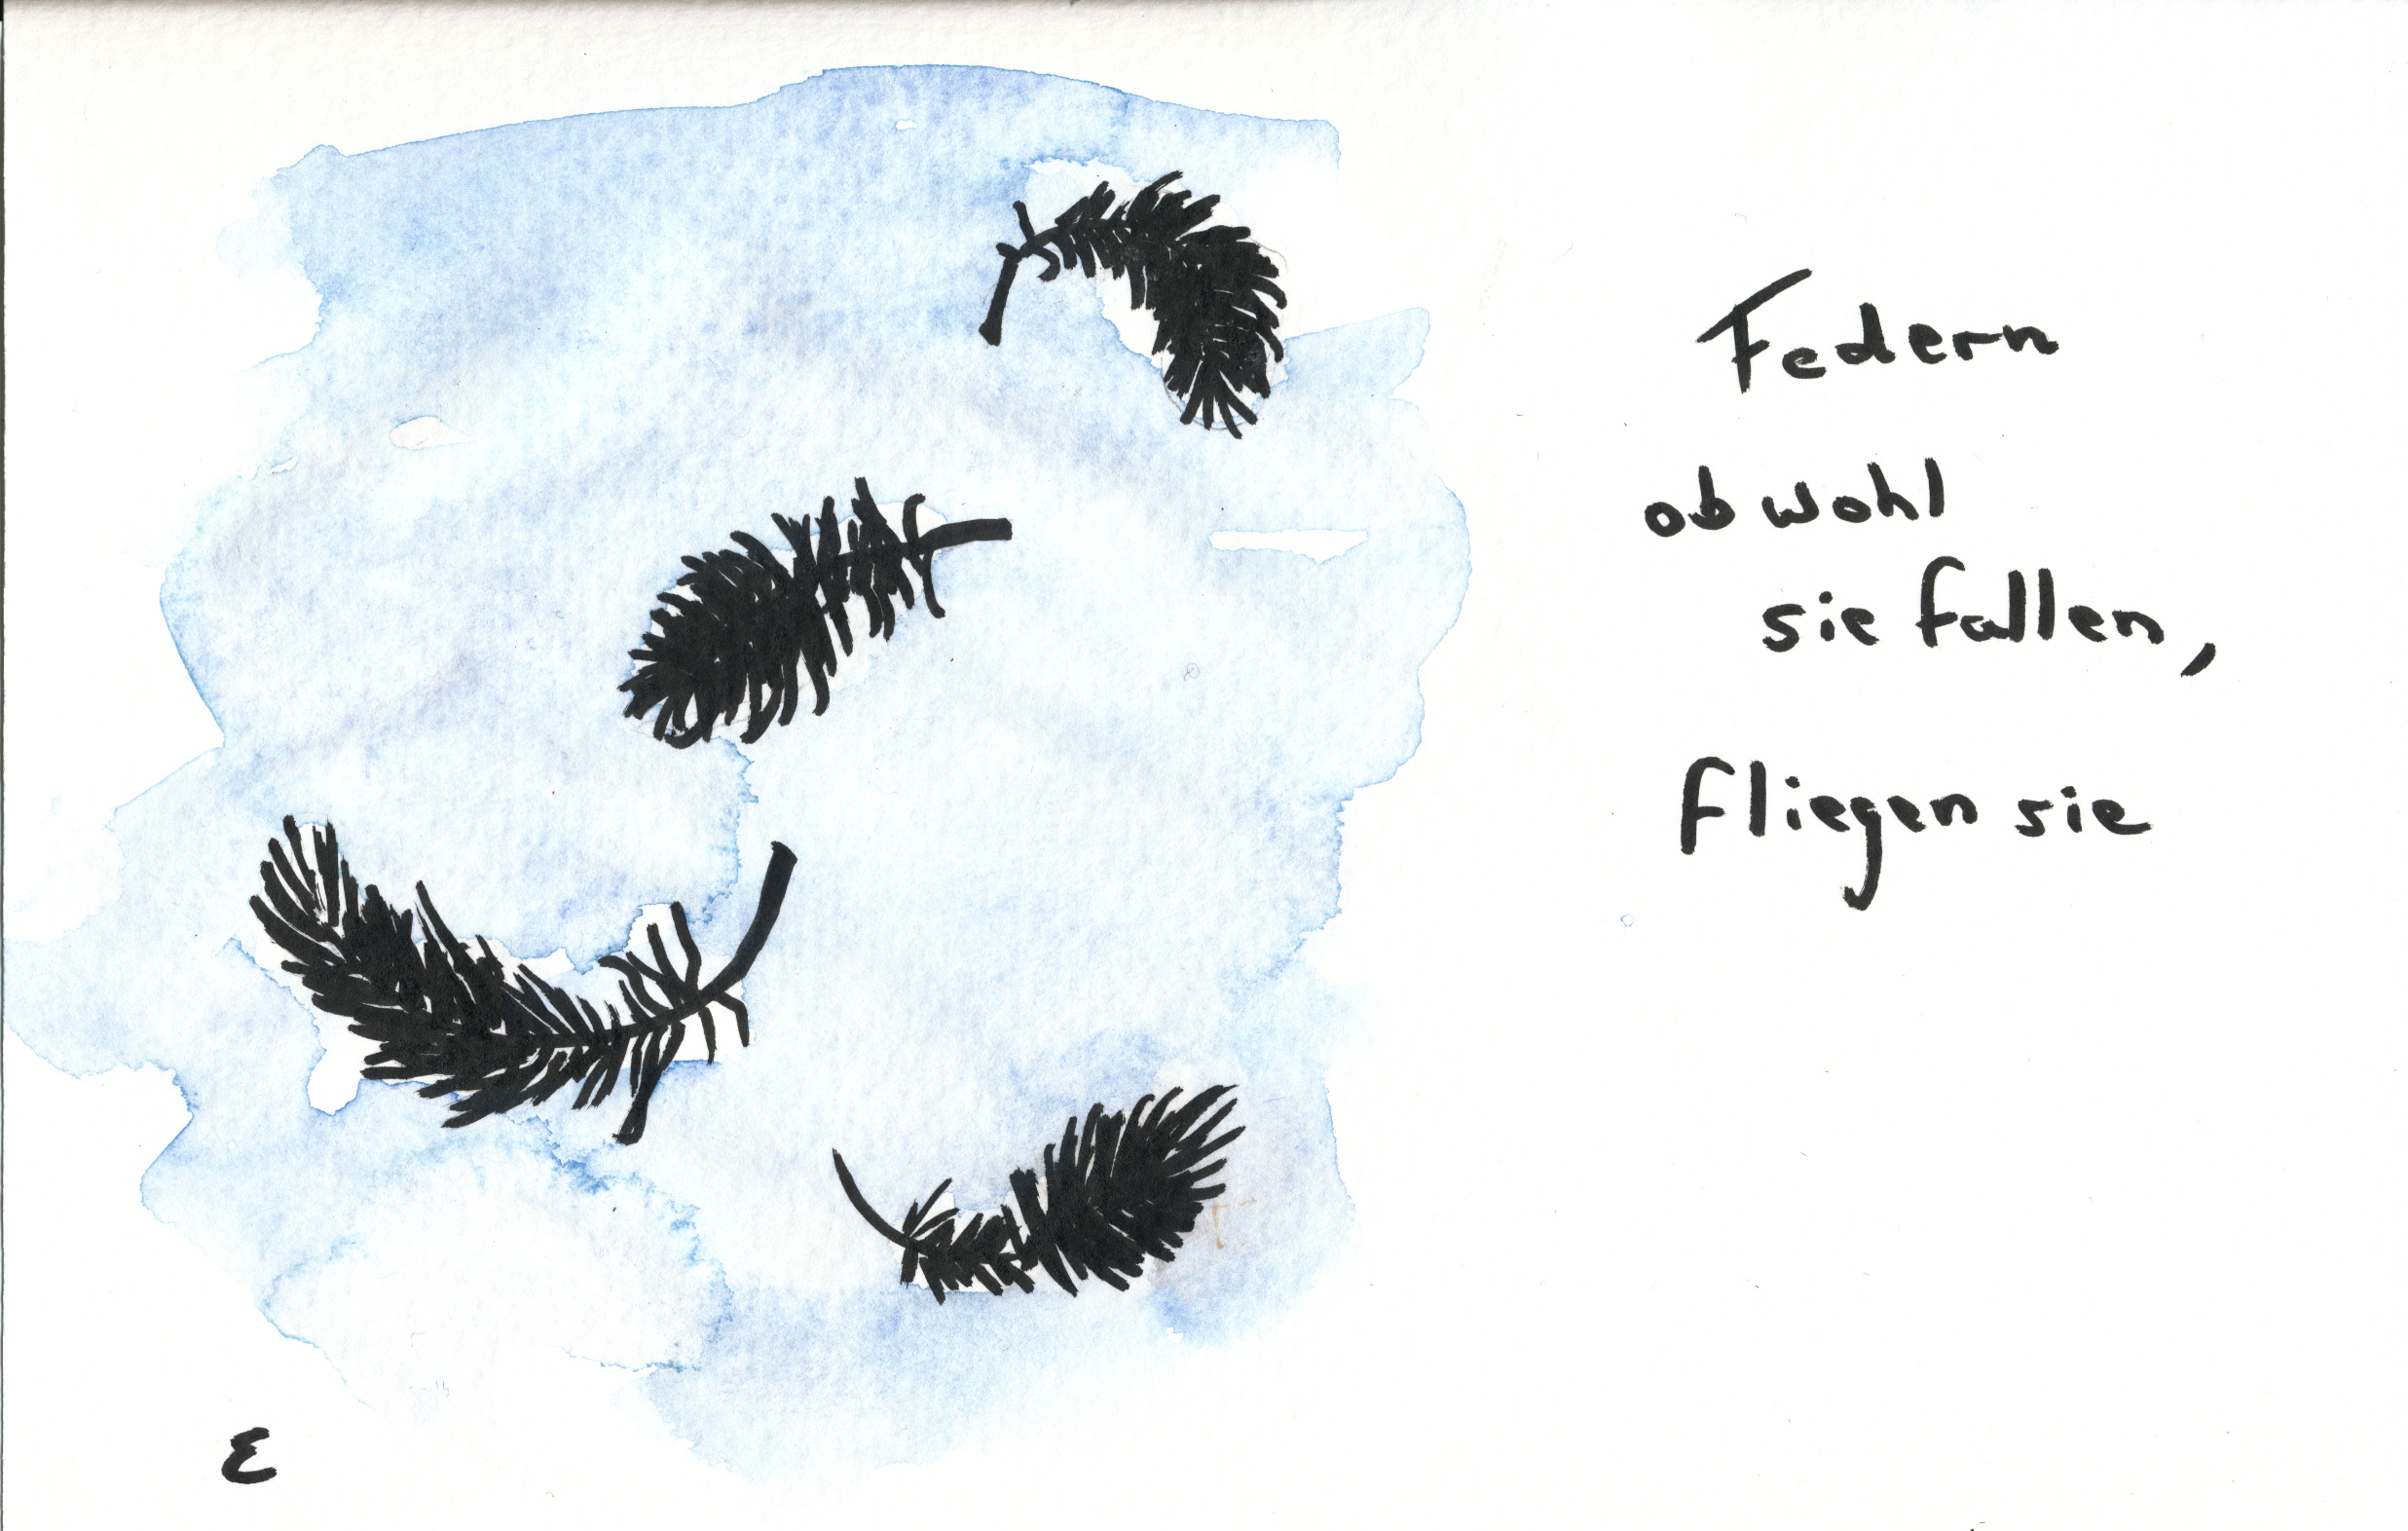 Federn
obwohl
sie fallen,
fliegen sie
ε